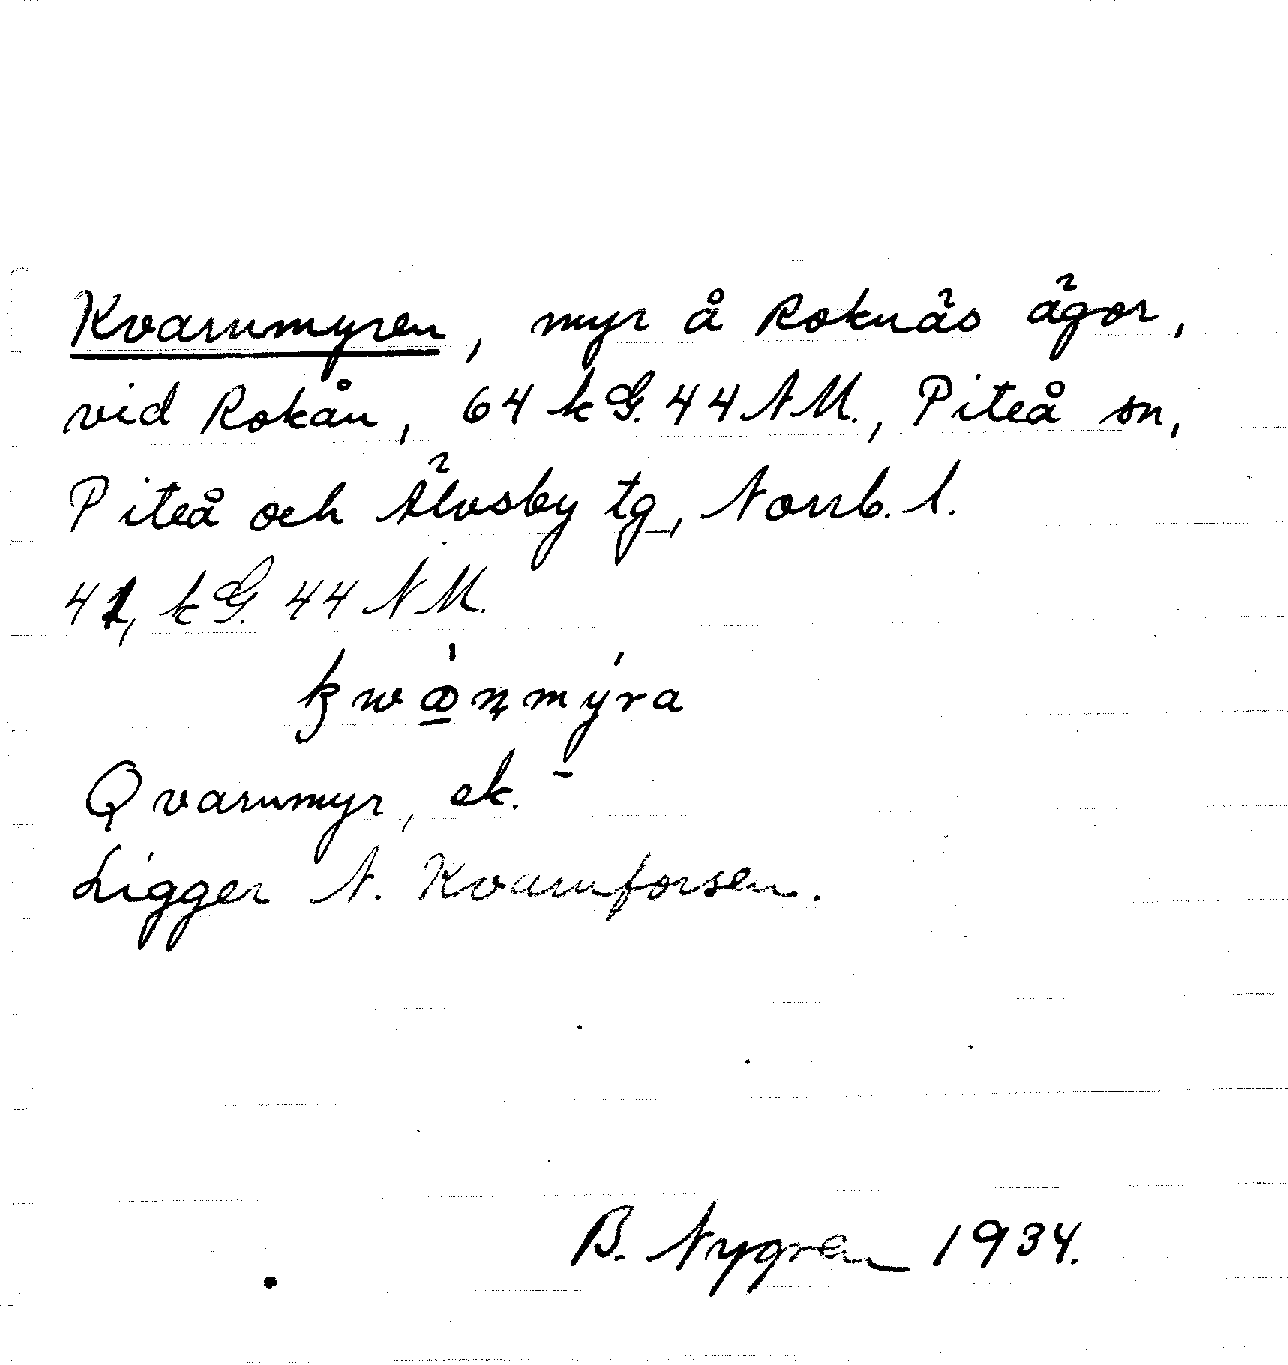 Kvarnmyren, myr å Roknäs ägor,
vid Rokån, 64 kG. 44 NM., Piteå sn,
Piteå och Älvsby tg, Norrb. l.
41, kG. 44 NM.
Qvarnmyr, ek.
Ligger N. Kvarnforsen.
B. Nygren 1934.